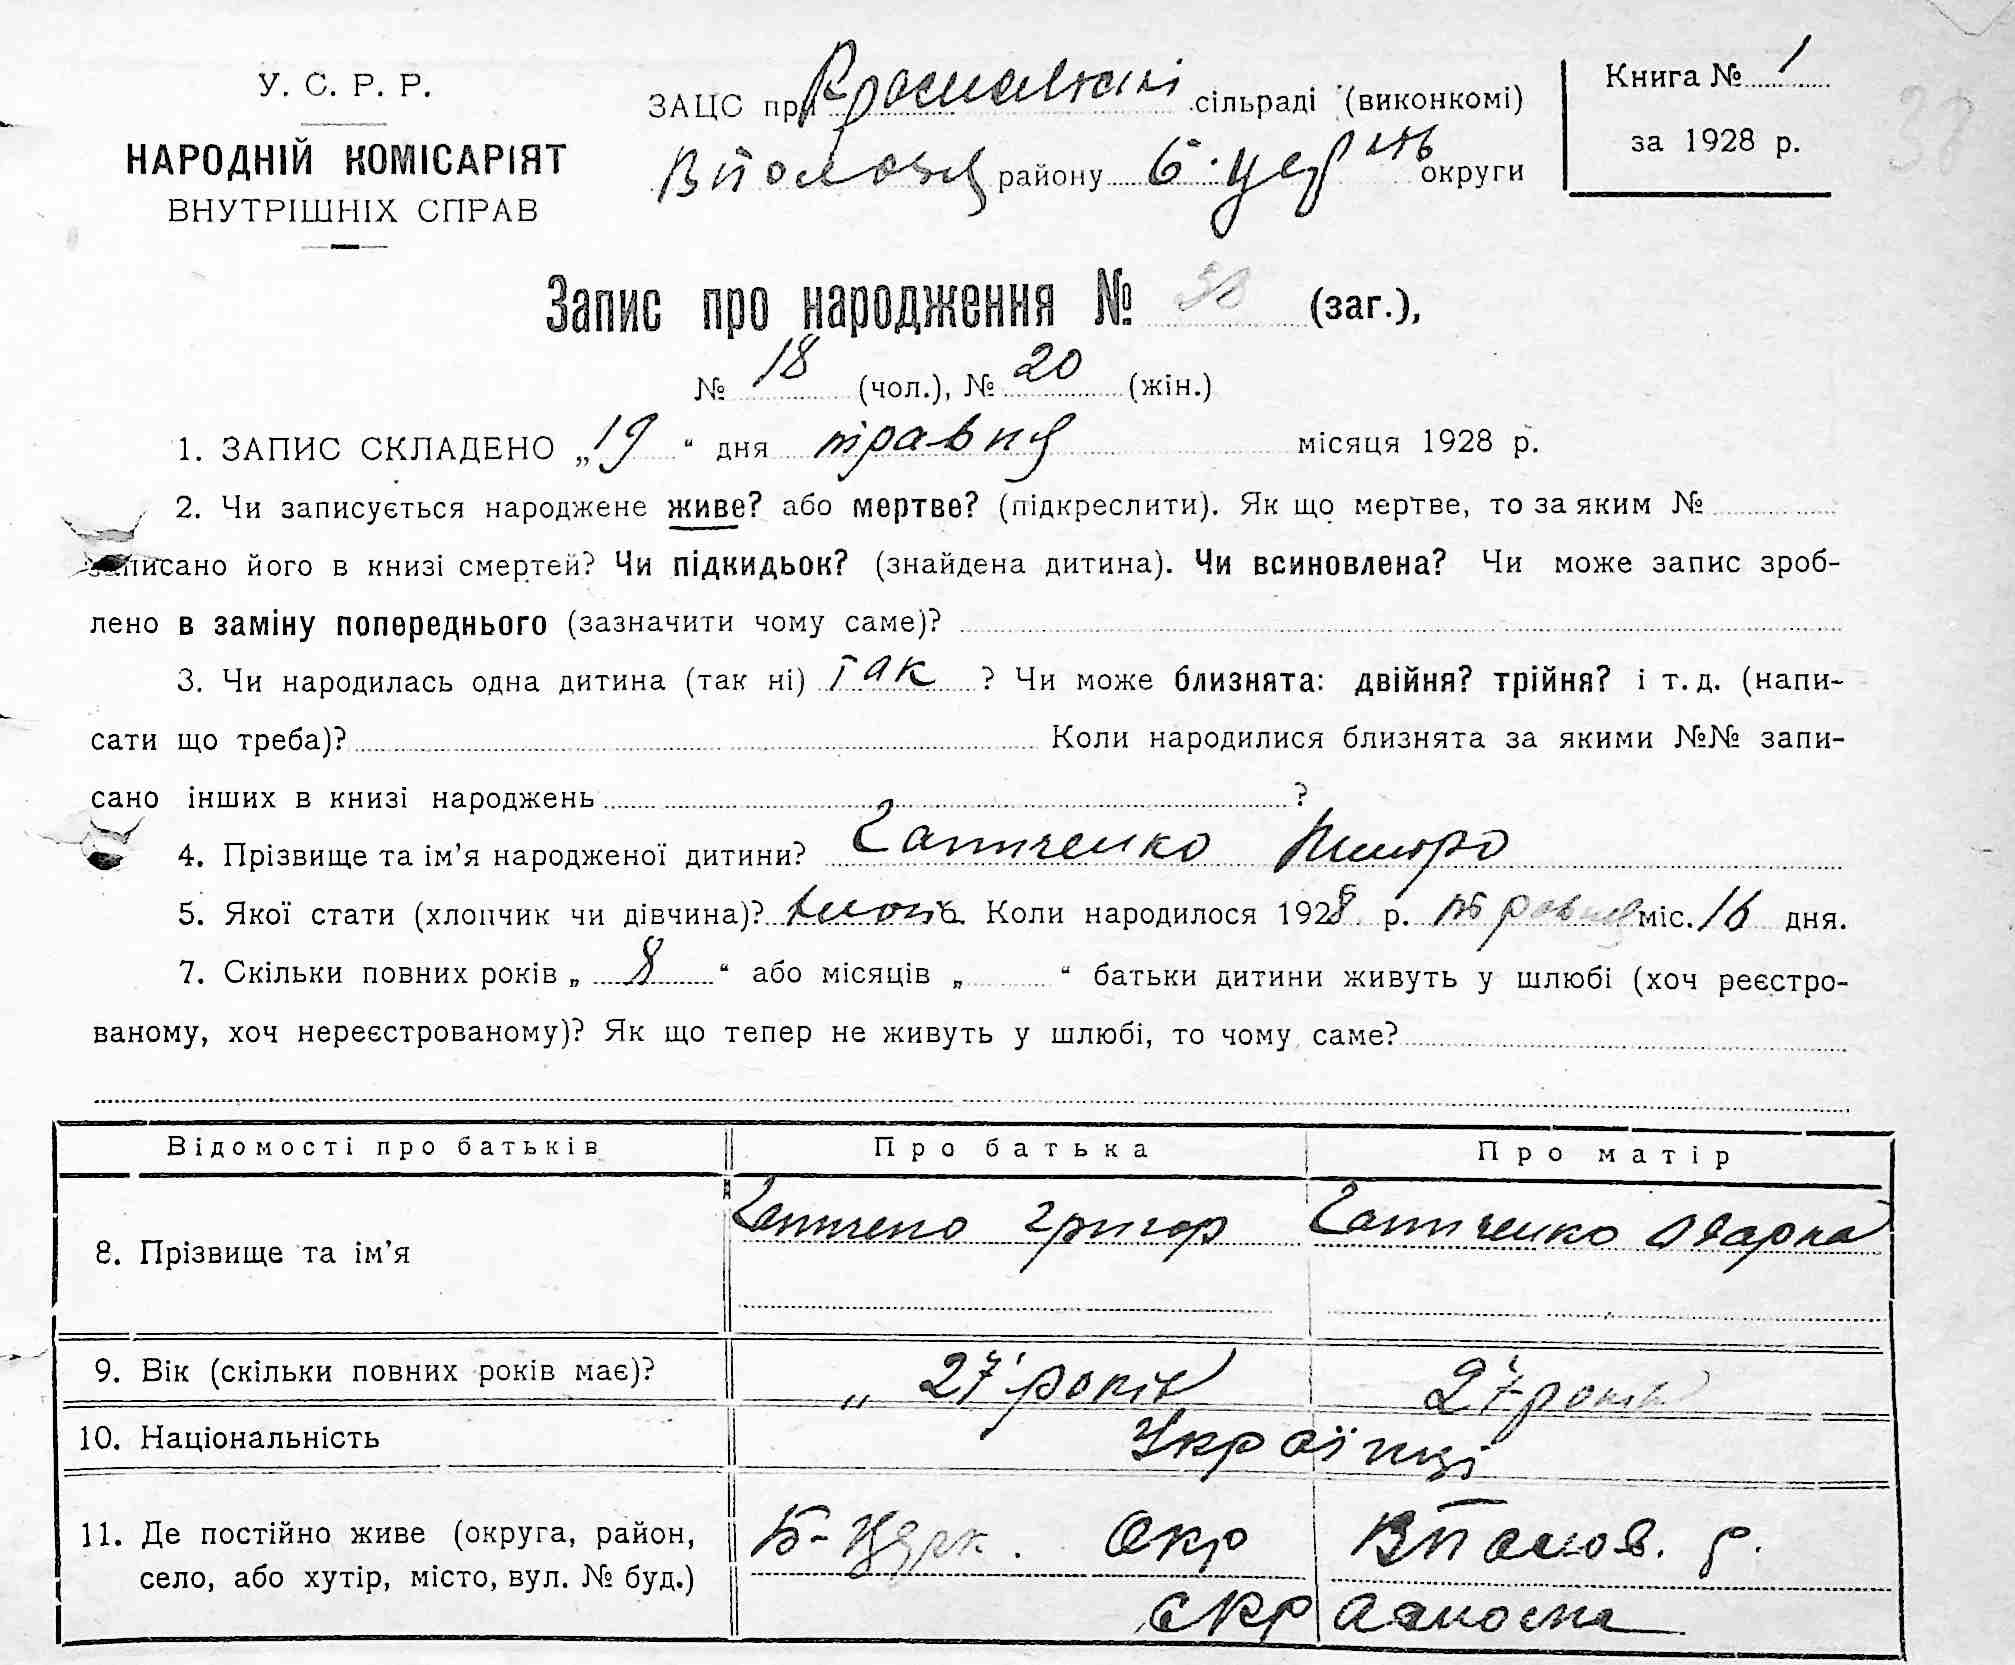 У. С. Р. Р.
НАРОДНІЙ КОМІСАРІЯТ
ВНУТРІШНІХ СПРАВ
ЗАЦС при сільраді (виконкомі)
району Б. Церк округи
Книга № 1
за 1928 р.
38
Запис про народження № 38 (заг.),
№ 18 (чол.), № 20 (жін.)
1. ЗАПИС СКЛАДЕНО „19“ дня травня місяця 1928 р.
2. Чи записується народжене живе? або мертве? (підкреслити). Як що мертве, то за яким №
записано його в книзі смертей? Чи підкидьок? (знайдена дитина). Чи всиновлена? Чи може запис зроб-
лено в заміну попереднього (зазначити чому саме)?
3. Чи народилась одна дитина (так ні) так ? Чи може близнята: двійня? трійня? і т. д. (напи-
сати що треба)? Коли народилися близнята за якими №№ запи-
сано інших в книзі народжень ?
4. Прізвище та ім’я народженої дитини? Гатченко
5. Якої стати (хлопчик чи дівчина)? Коли народилося 1928 р. травня міс. 16 дня.
7. Скільки повних років „ 8 “ або місяців „ “ батьки дитини живуть у шлюбі (хоч реєстро-
ваному, хоч нереєстрованому)? Як що тепер не живуть у шлюбі, то чому саме?
Відомості про батьків Про батька Про матір
8. Прізвище та ім’я Григор Гатченко Одарка
9. Вік (скільки повних років має)? „ 27 років 27 років
10. Національність Українці
11. Де постійно живе (округа, район, Б-Церк. Окр р.
село, або хутір, місто, вул. № буд.)